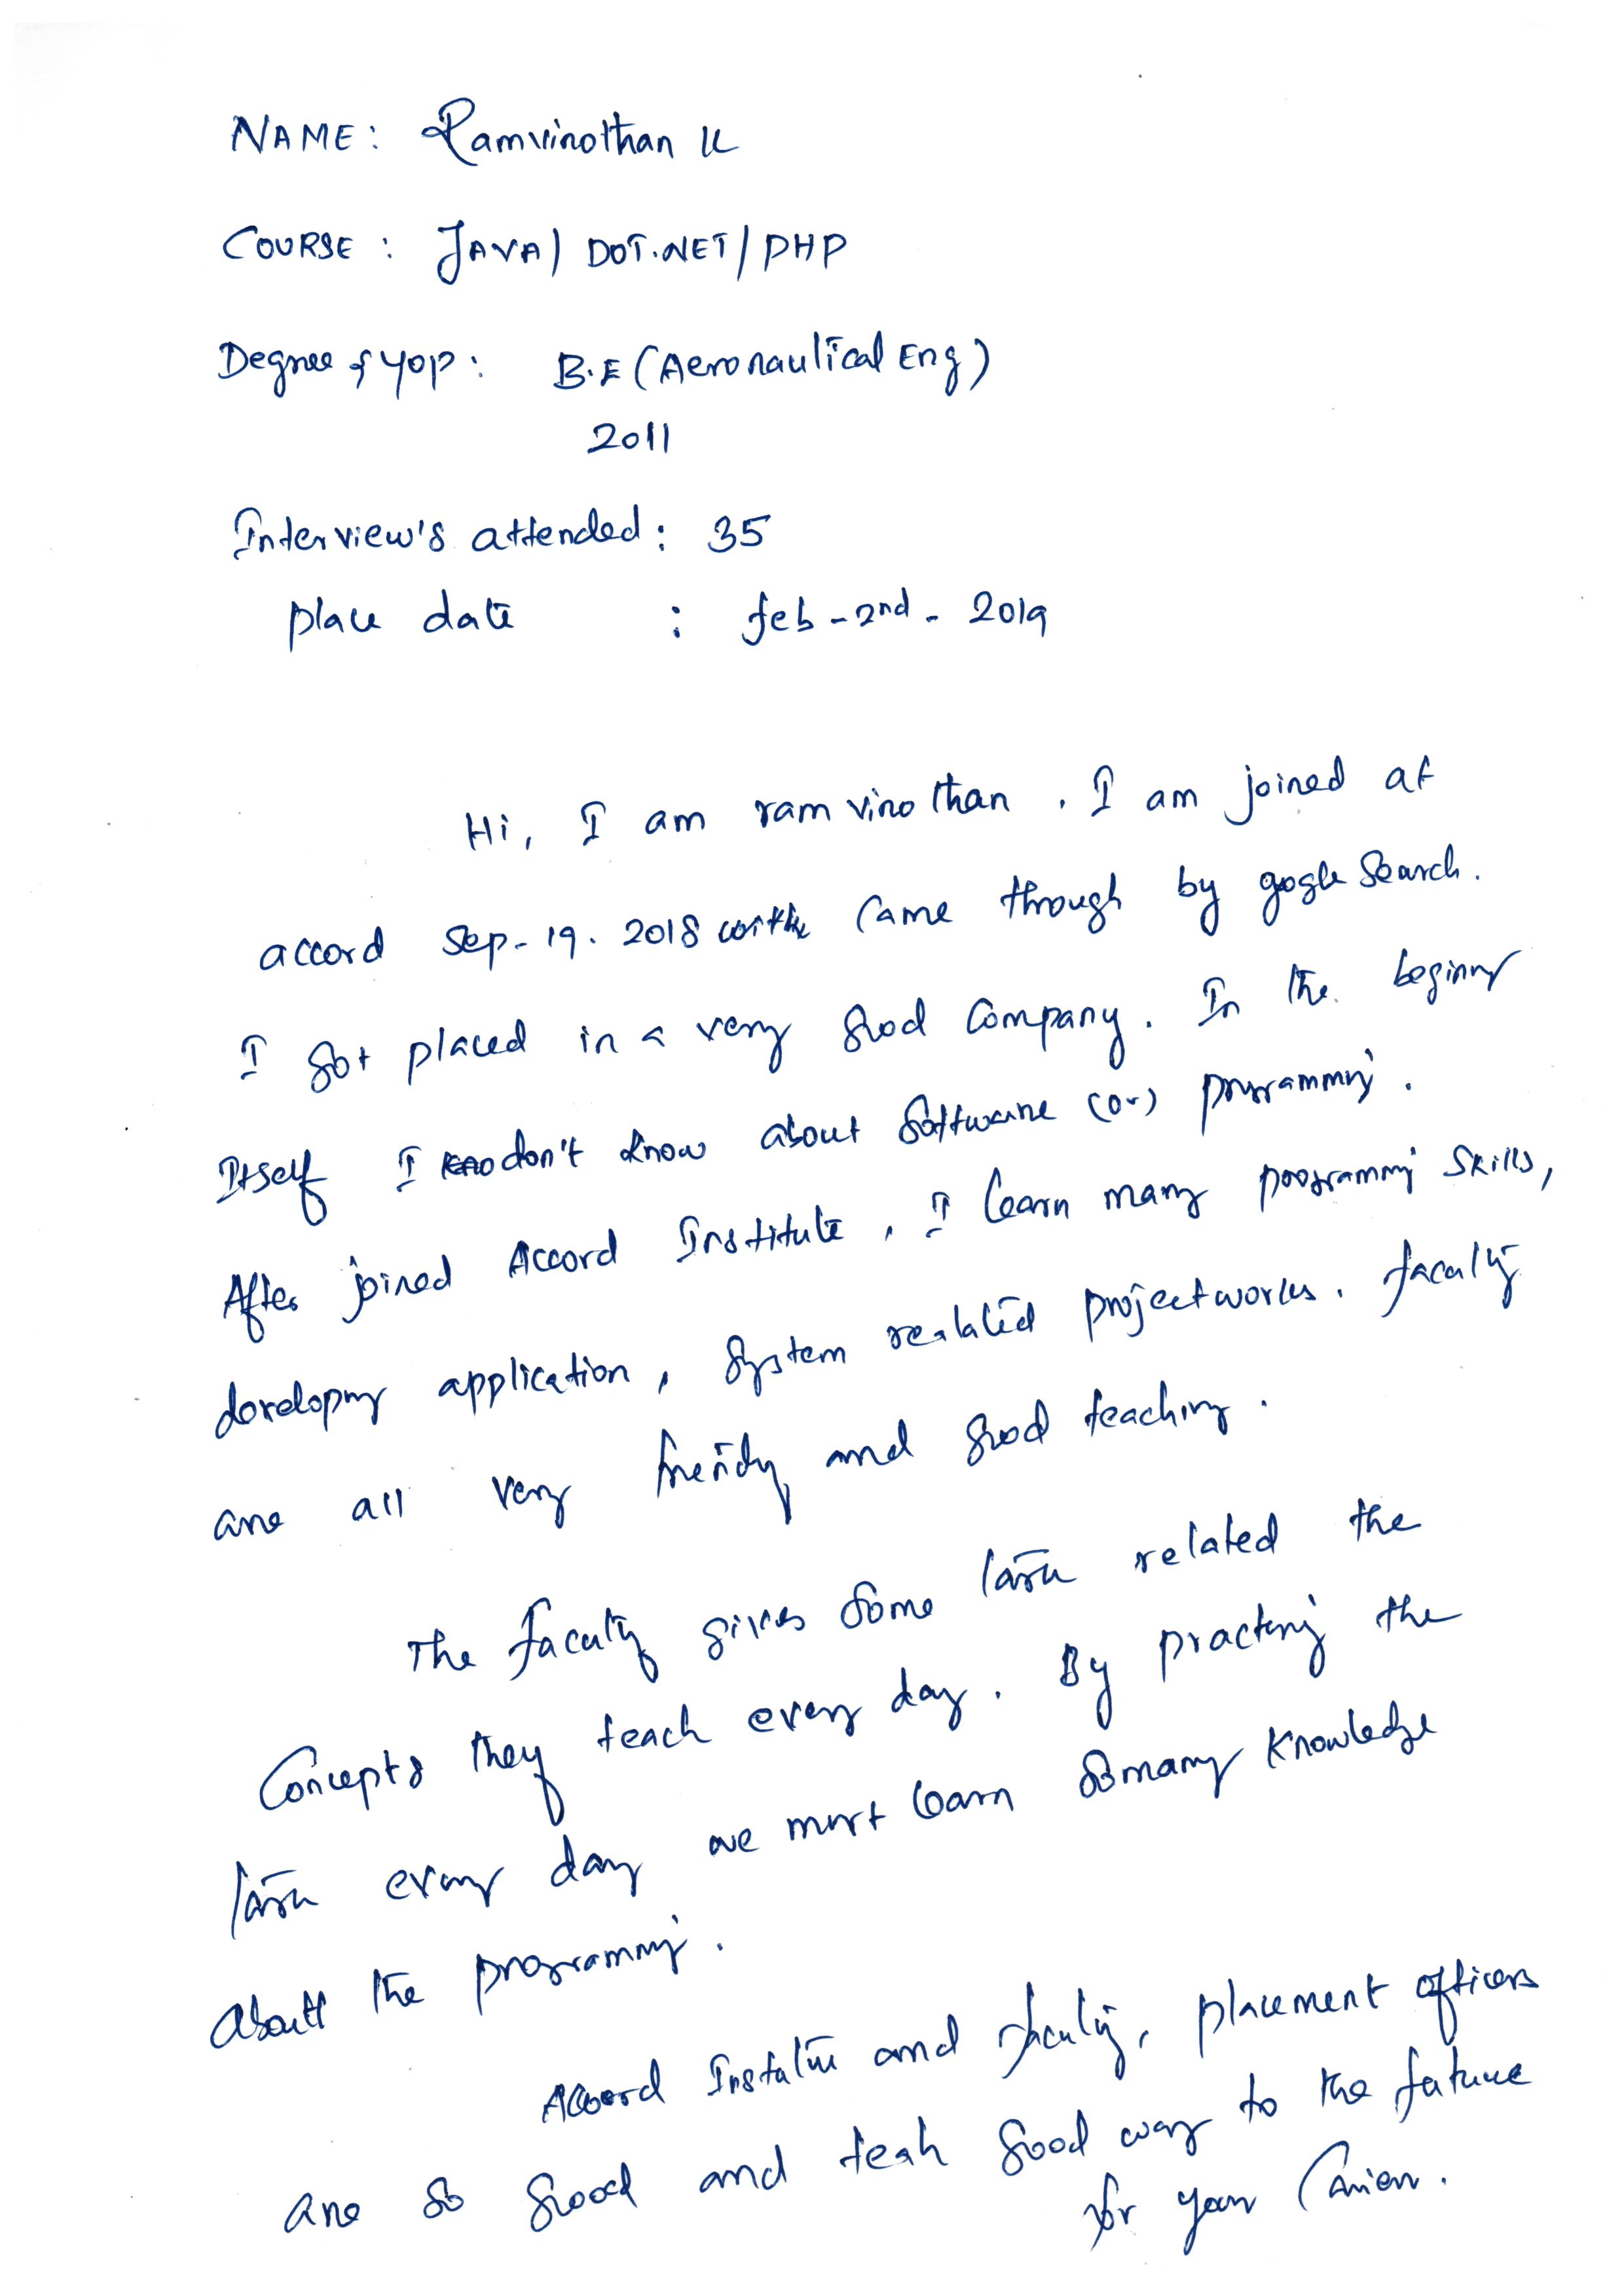 NAME: Ramvinothan K
COURSE : JAVA/ DOT.NET/ PHP
Degree & yop: B.E (Aeronautical Eng)
2011
Interview's attended: 35
place date : feb - 2nd - 2019
Hi, I am ram vinothan. I am joined at
accord sep-19. 2018 came through by gogle Search.
I got placed in a very good Company. In the
Itself I don't know about Software (or)
After joined Accord Institute, I learn many skills,
application, System projectworks.
are all very and good teaching.
The faculty gives some task related the
Concepts they teach every day. By the
task every day we must learn so many knowledge
the
Accord and placement officers
are so good and good way to the future
for your